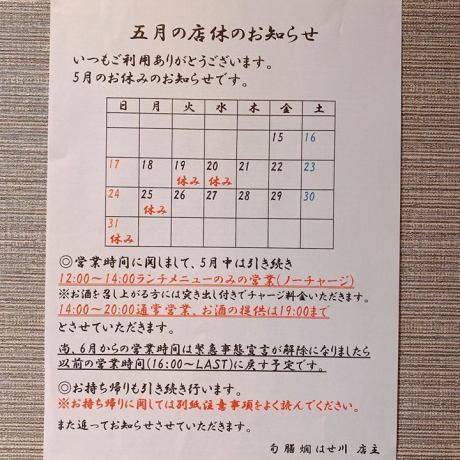 五月の店休のお知らせ
いつもご利用ありがとうございます。
5月のお休みのお知らせです。
日 月 火 水 木 金 土
15 16
17 18 19 20 21 22 23
休み 休み
24 25 26 27 28 29 30
休み
31
休み
◎営業時間に関しまして、5月中は引き続き
12:00〜14:00ランチメニューのみの営業(ノーチャージ)
※お酒を召し上がる方には突き出し付きでチャージ料金いただきます。
14:00〜20:00通常営業、お酒の提供は19:00まで
とさせていただきます。
尚、6月からの営業時間は緊急事態宣言が解除になりましたら
以前の営業時間(16:00〜LAST)に戻す予定です。
◎お持ち帰りも引き続き行います。
※お持ち帰りに関しては別紙注意事項をよく読んでください。
また追ってお知らせさせていただきます。
旬膳燗はせ川 店主